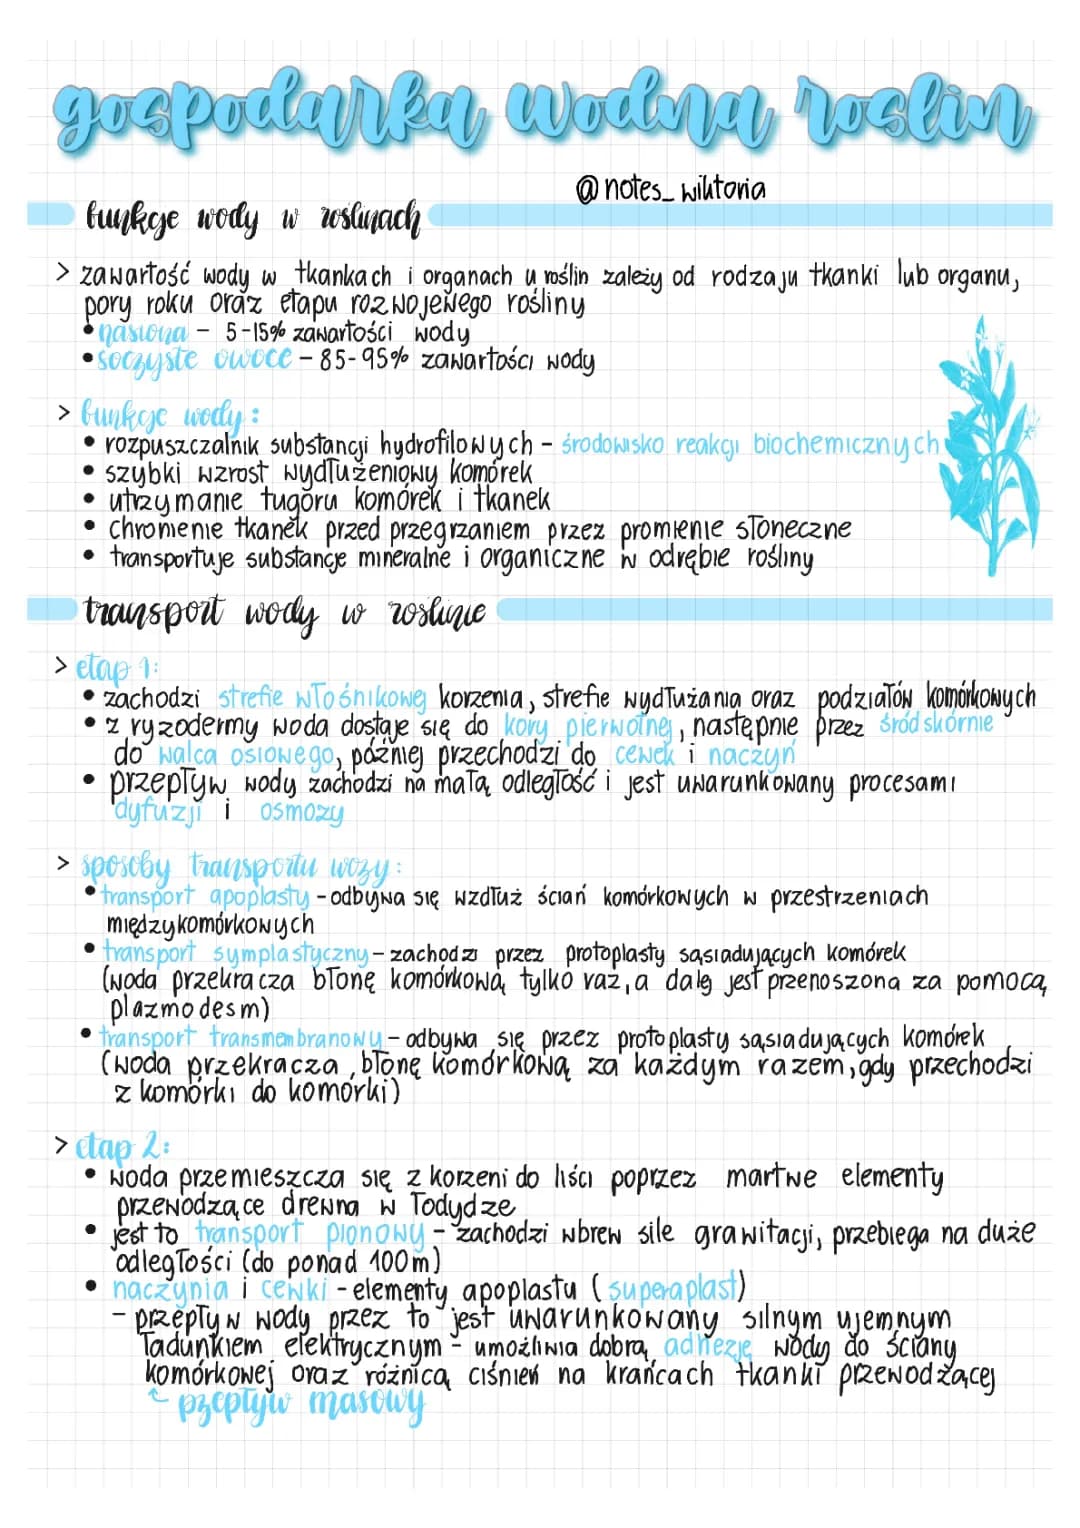 gospodarka wodna roslin
@notes_wiktoria
funkcje wody w roślinach
> zawartość wody w tkankach i organach u roślin zależy od rodzaju tkanki lub organu,
pory roku oraz etapu rozwojewego rośliny
• nasiona – 5-15% zawartości wody
• soczyste owoce – 85-95% zawartości wody
> funkcje wody:
• rozpuszczalnik substancji hydrofilowych – środowisko reakcji biochemicznych
• szybki wzrost wydłużeniowy komórek
• utrzymanie tugoru komórek i tkanek
• chronienie tkanek przed przegrzaniem przez promienie słoneczne
• transportuje substancje mineralne i organiczne w odrębie rośliny
transport wody w roślinie
> etap 1:
• zachodzi strefie włośnikowej korzenia, strefie wydłużania oraz podziałów komórkowych
• z ryzodermy woda dostaje się do kory pierwotnej, następnie przez śródskórnie
do walca osiowego, później przechodzi do cewek i naczyń
• przepływ wody zachodzi na małą odległość i jest uwarunkowany procesami
dyfuzji i osmozy
> sposoby transportu wozy:
• transport apoplasty – odbywa się wzdłuż ścian komórkowych w przestrzeniach
międzykomórkowych
• transport symplastyczny – zachodzi przez protoplasty sąsiadujących komórek
(woda przekracza błonę komórkową tylko raz, a dalej jest przenoszona za pomocą
plazmodesm)
• transport transmembranowy – odbywa się przez protoplasty sąsiadujących komórek
(woda przekracza błonę komórkową za każdym razem, gdy przechodzi
z komórki do komórki)
> etap 2:
• woda przemieszcza się z korzeni do liści poprzez martwe elementy
przewodzące drewna w łodydze
• jest to transport pionowy – zachodzi wbrew sile grawitacji, przebiega na duże
odległości (do ponad 100m)
• naczynia i cewki – elementy apoplastu (superaplast)
– przepływ wody przez to jest uwarunkowany silnym ujemnym
ładunkiem elektrycznym – umożliwia dobrą adhezję wody do ściany
komórkowej oraz różnicą ciśnień na krańcach tkanki przewodzącej
↳ pzepływ masowy